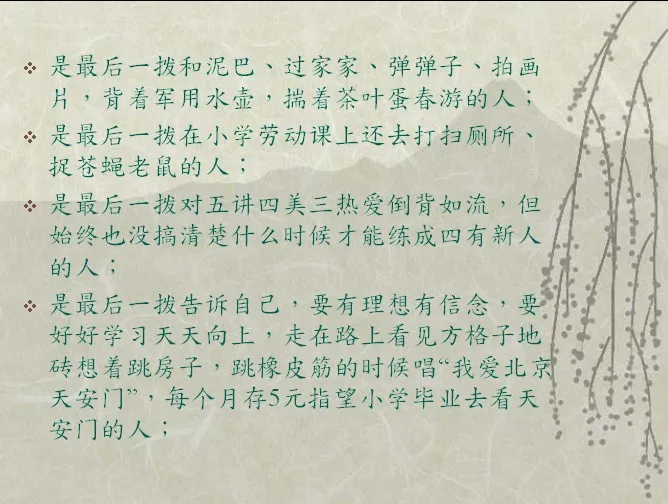 是最后一拨和泥巴、过家家、弹弹子、拍画
片，背着军用水壶，揣着茶叶蛋春游的人；
是最后一拨在小学劳动课上还去打扫厕所、
捉苍蝇老鼠的人；
是最后一拨对五讲四美三热爱倒背如流，但
始终也没搞清楚什么时候才能练成四有新人
的人；
是最后一拨告诉自己，要有理想有信念，要
好好学习天天向上，走在路上看见方格子地
砖想着跳房子，跳橡皮筋的时候唱“我爱北京
天安门”，每个月存5元指望小学毕业去看天
安门的人；